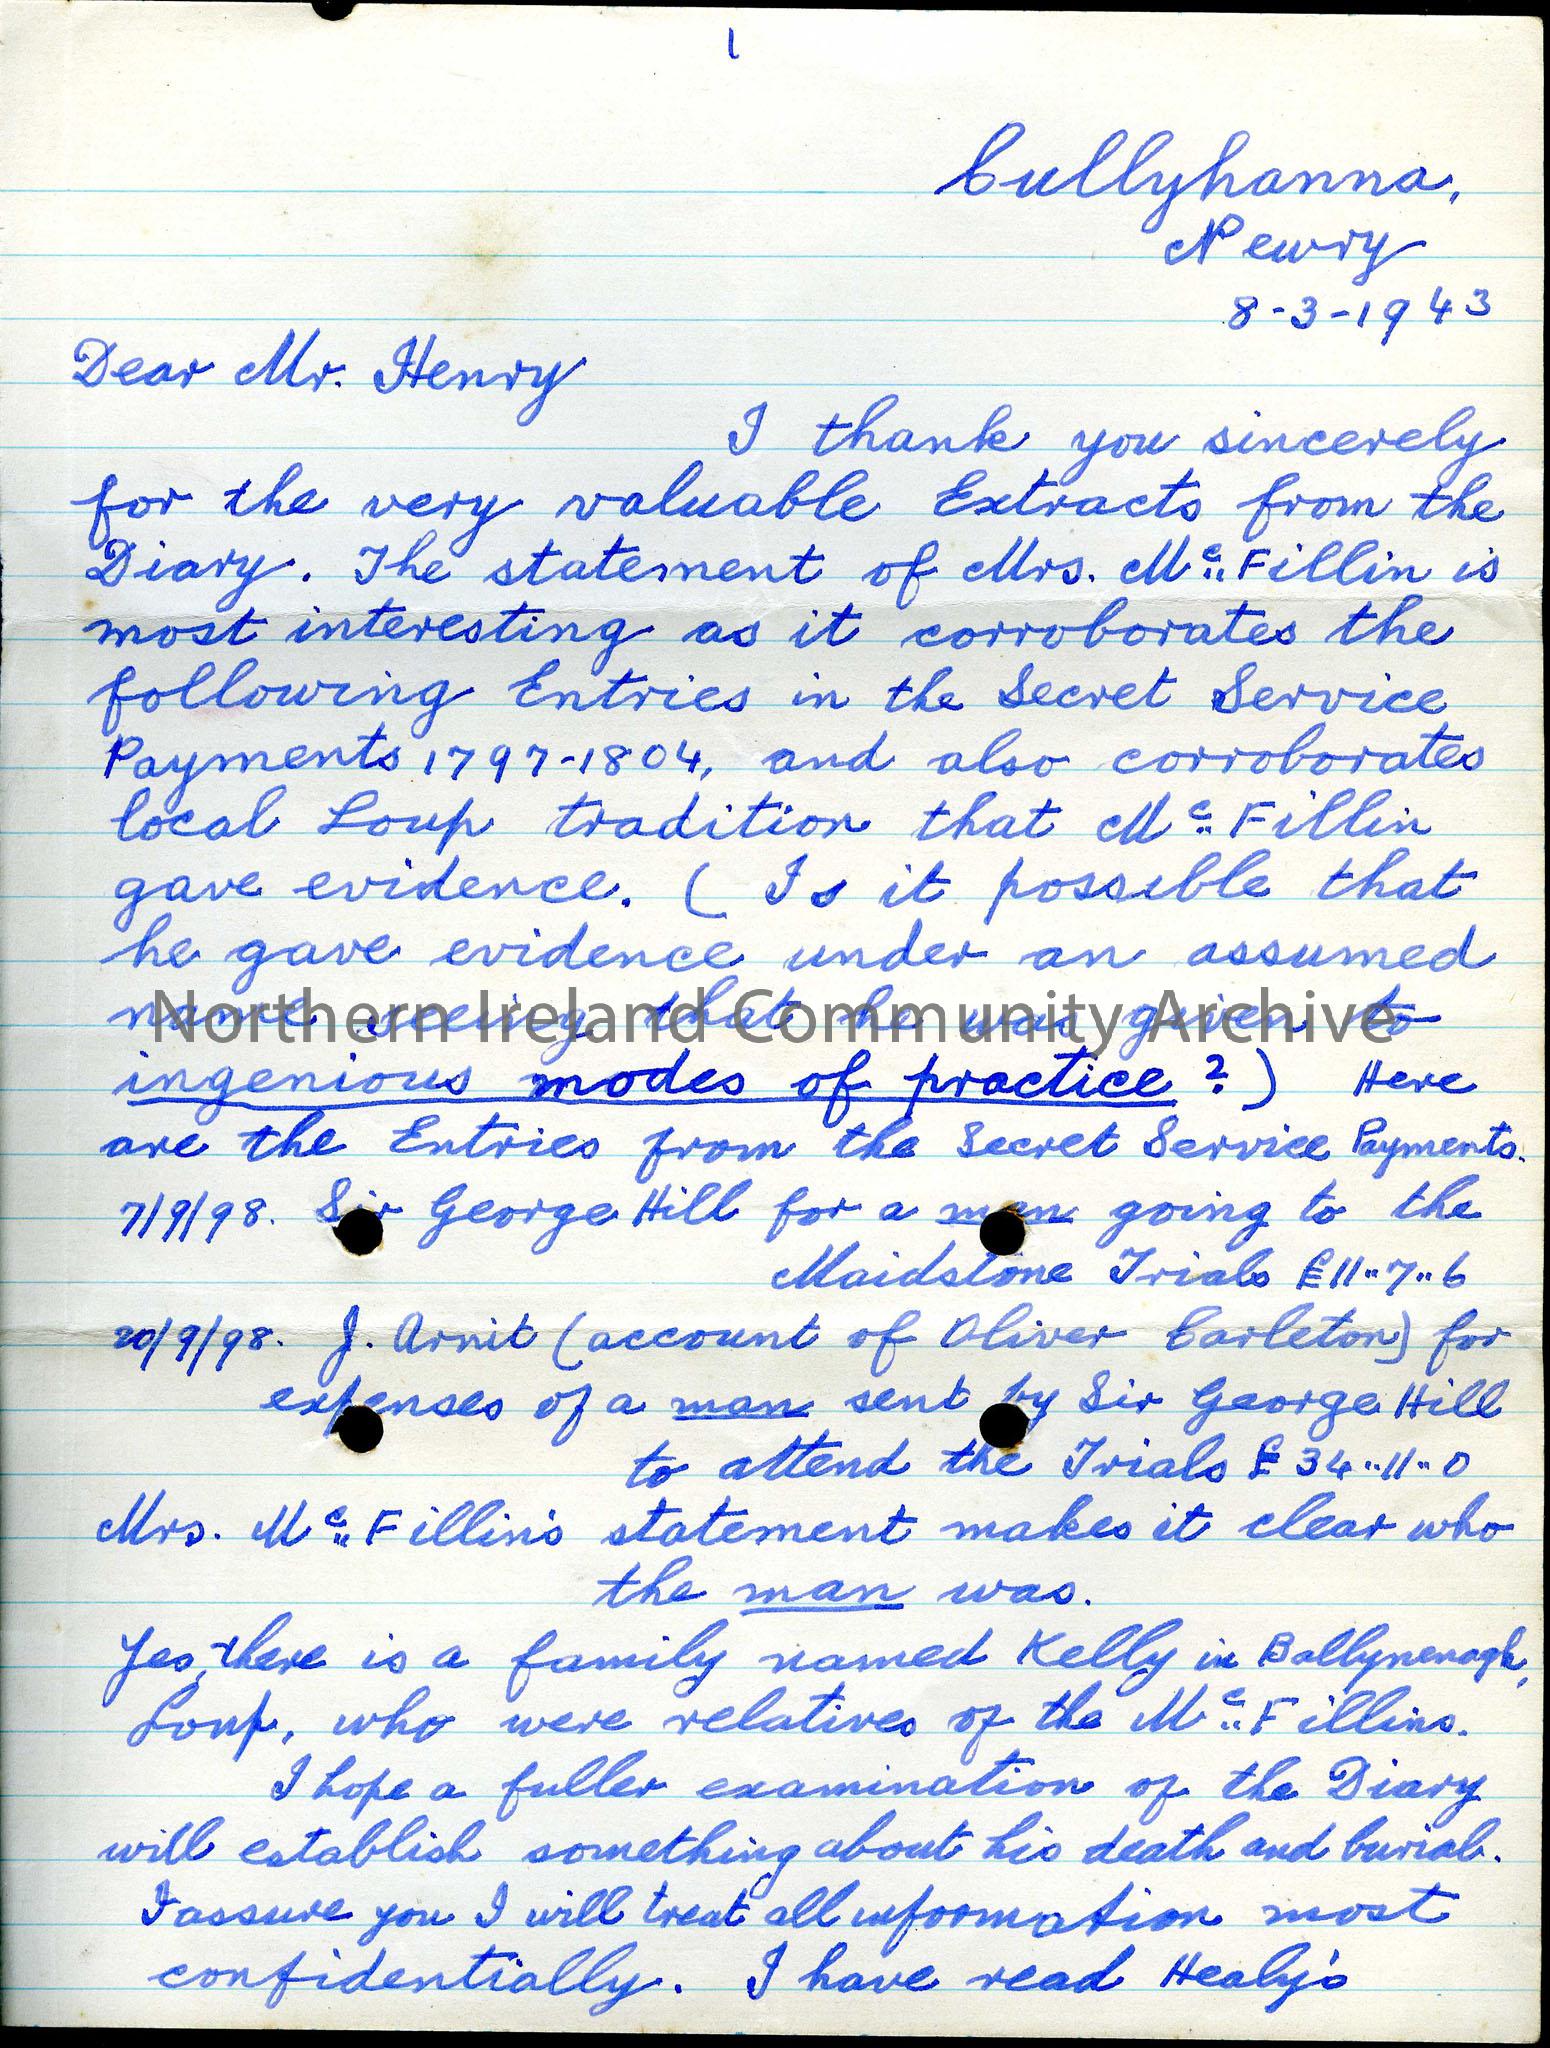 1
Cullyhanna,
Newry
8-3-1943
Dear Mr. Henry
I thank you sincerely
for the very valuable Extracts from the
Diary. The statement of Mrs. McFillin is
most interesting as it corroborates the
following Entries in the Secret Service
Payments 1797-1804, and also corroborates
local Loup tradition that McFillin
gave evidence. ( Is it possible that
he gave evidence under an assumed
name seeing that he was given to
Northern Ireland Community Archive
ingenious modes of practice ?) Here
are the Entries from the Secret Service Payments.
7/9/98. Sir George Hill for a man going to the
Maidstone Trials £11..7..6
20/9/98. J. Arnit (account of Oliver Carleton) for
expenses of a man sent by Sir George Hill
to attend the Trials £34..11..0
Mrs. McFillin's statement makes it clear who
the man was.
Yes, there is a family named Kelly in Ballynenagh,
Loup, who were relatives of the McFillins.
I hope a fuller examination of the Diary
will establish something about his death and burial.
I assure you I will treat all information most
confidentially. I have read Healy's